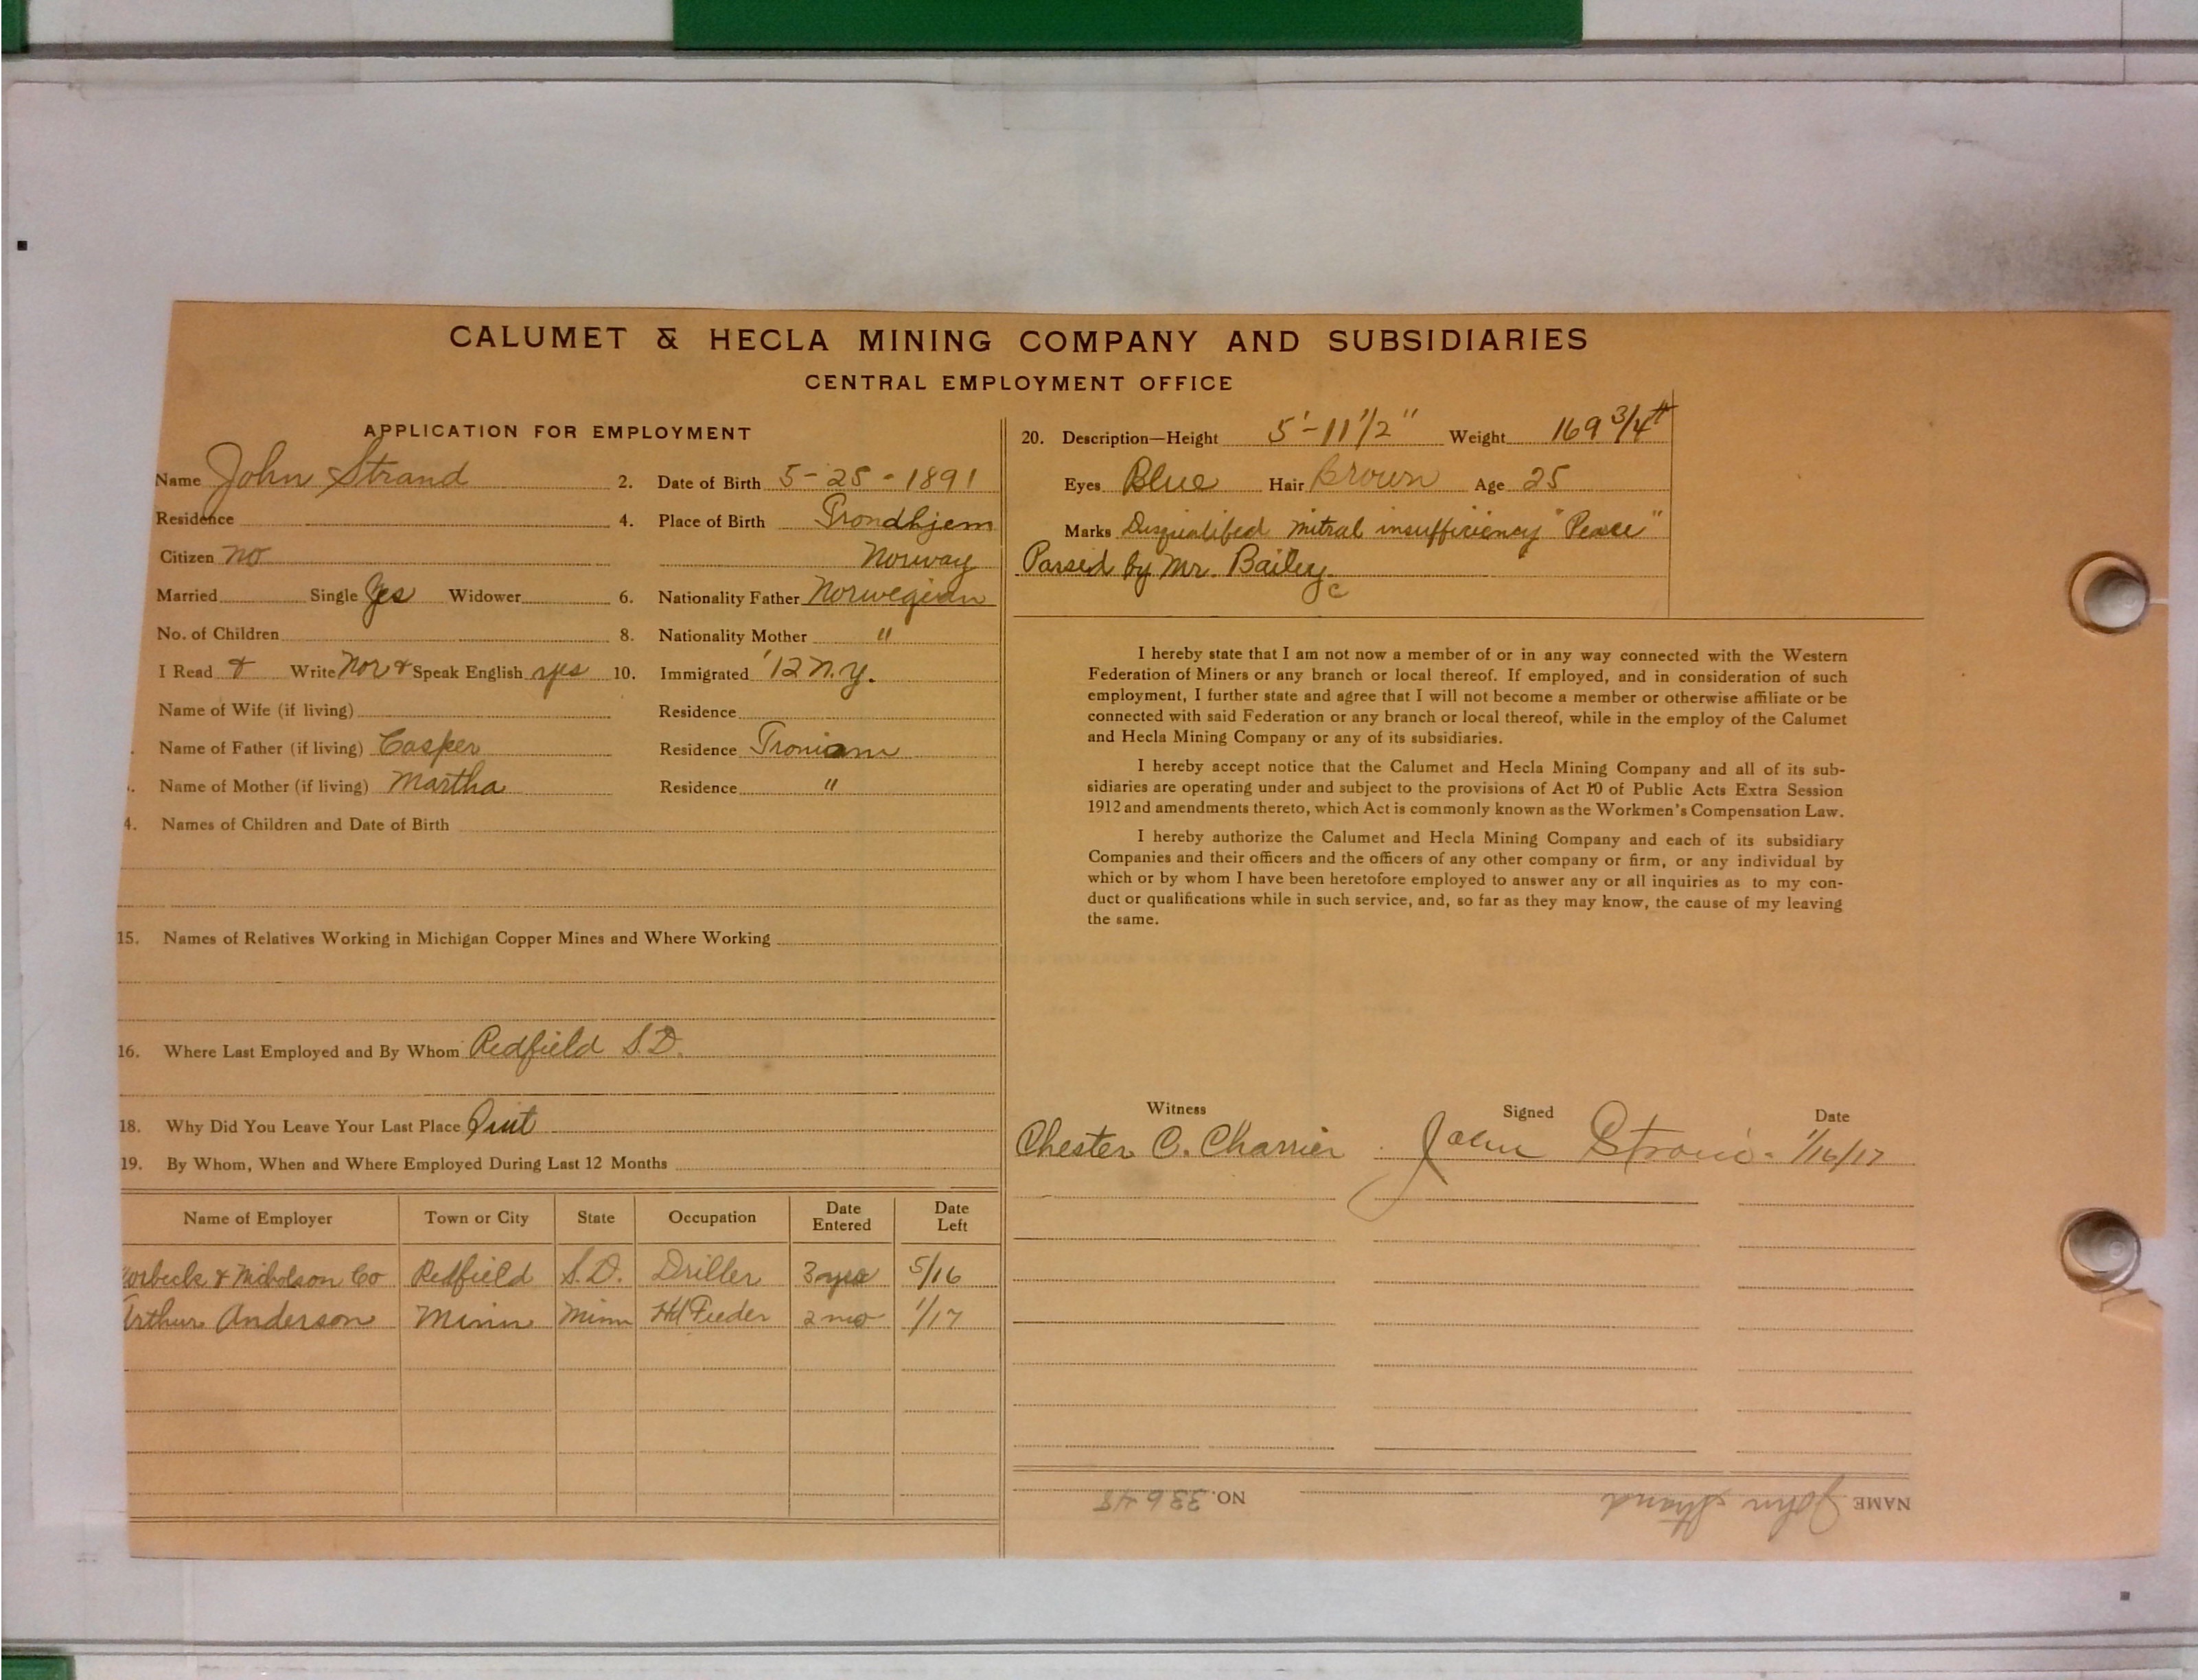 CALUMET & HECLA MINING COMPANY AND SUBSIDIARIES
CENTRAL EMPLOYMENT OFFICE
APPLICATION FOR EMPLOYMENT
Name John Strand
2. Date of Birth 5-25-1891
Residence
4. Place of Birth Trondhjem
Citizen no
Norway
Married Single Yes Widower
6. Nationality Father Norwegian
No. of Children
8. Nationality Mother "
I Read & Write Nor & Speak English yes
10. Immigrated '12 N.Y.
Name of Wife (if living)
Residence
Name of Father (if living) Casper
Residence
Name of Mother (if living) Martha
Residence "
4. Names of Children and Date of Birth
15. Names of Relatives Working in Michigan Copper Mines and Where Working
16. Where Last Employed and By Whom Redfield S.D.
18. Why Did You Leave Your Last Place Quit
19. By Whom, When and Where Employed During Last 12 Months
Name of Employer Town or City State Occupation Date Entered Date Left
orbeck & Nicholson Co Redfield S.D. Driller 3 yrs 5/16
Arthur Anderson Minn Minn Hd Feeder 2 mo 1/17
20. Description—Height 5'-11 1/2" Weight 169 3/4 #
Eyes Blue Hair Brown Age 25
Marks Disqualifed mitral insufficiency "Pease"
Passed by Mr. Bailey
c
I hereby state that I am not now a member of or in any way connected with the Western
Federation of Miners or any branch or local thereof. If employed, and in consideration of such
employment, I further state and agree that I will not become a member or otherwise affiliate or be
connected with said Federation or any branch or local thereof, while in the employ of the Calumet
and Hecla Mining Company or any of its subsidiaries.
I hereby accept notice that the Calumet and Hecla Mining Company and all of its sub-
sidiaries are operating under and subject to the provisions of Act 10 of Public Acts Extra Session
1912 and amendments thereto, which Act is commonly known as the Workmen's Compensation Law.
I hereby authorize the Calumet and Hecla Mining Company and each of its subsidiary
Companies and their officers and the officers of any other company or firm, or any individual by
which or by whom I have been heretofore employed to answer any or all inquiries as to my con-
duct or qualifications while in such service, and, so far as they may know, the cause of my leaving
the same.
Witness Signed Date
Chester C. Charrier John Strand 1/16/17
NAME John Strand NO. 33648